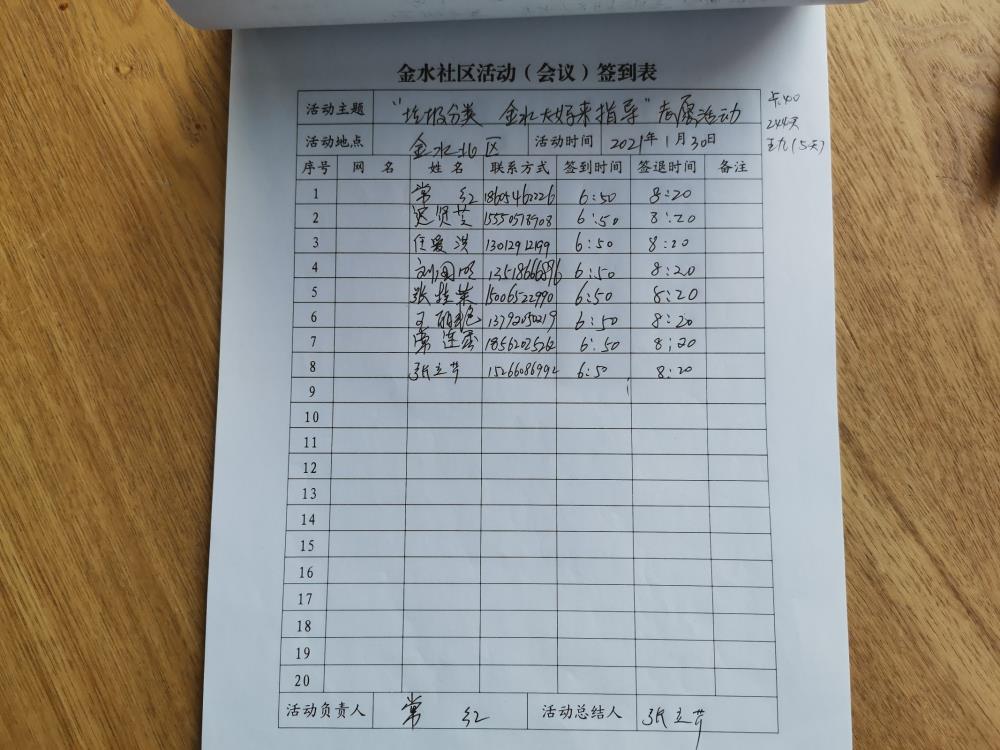 金水社区活动（会议）签到表
活动主题 "垃圾分类 金水大好来指导"志愿活动
活动地点 金水北区 活动时间 2021年1月30日
序号 网 名 姓 名 联系方式 签到时间 签退时间 备注
1 常 红 18605460226 6:50 8:20
2 迟贤芝 15550578908 6:50 8:20
3 任爱洪 13012912199 6:50 8:20
4 刘国明 13518666896 6:50 8:20
5 张桂荣 15006522990 6:50 8:20
6 王 13792050219 6:50 8:20
7 常连 1856202526 6:50 8:20
8 张立芹 15266086992 6:50 8:20
9
10
11
12
13
14
15
16
17
18
19
20
活动负责人 常 红 活动总结人 张立芹
244天
(5天)